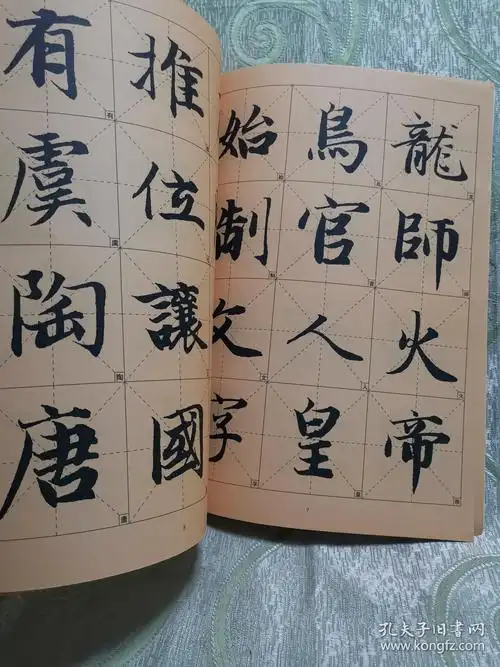 龍師火帝
鳥官人皇
始制文字
7
推位讓國
有虞陶唐
8
孔夫子旧书网
www.kongfz.com